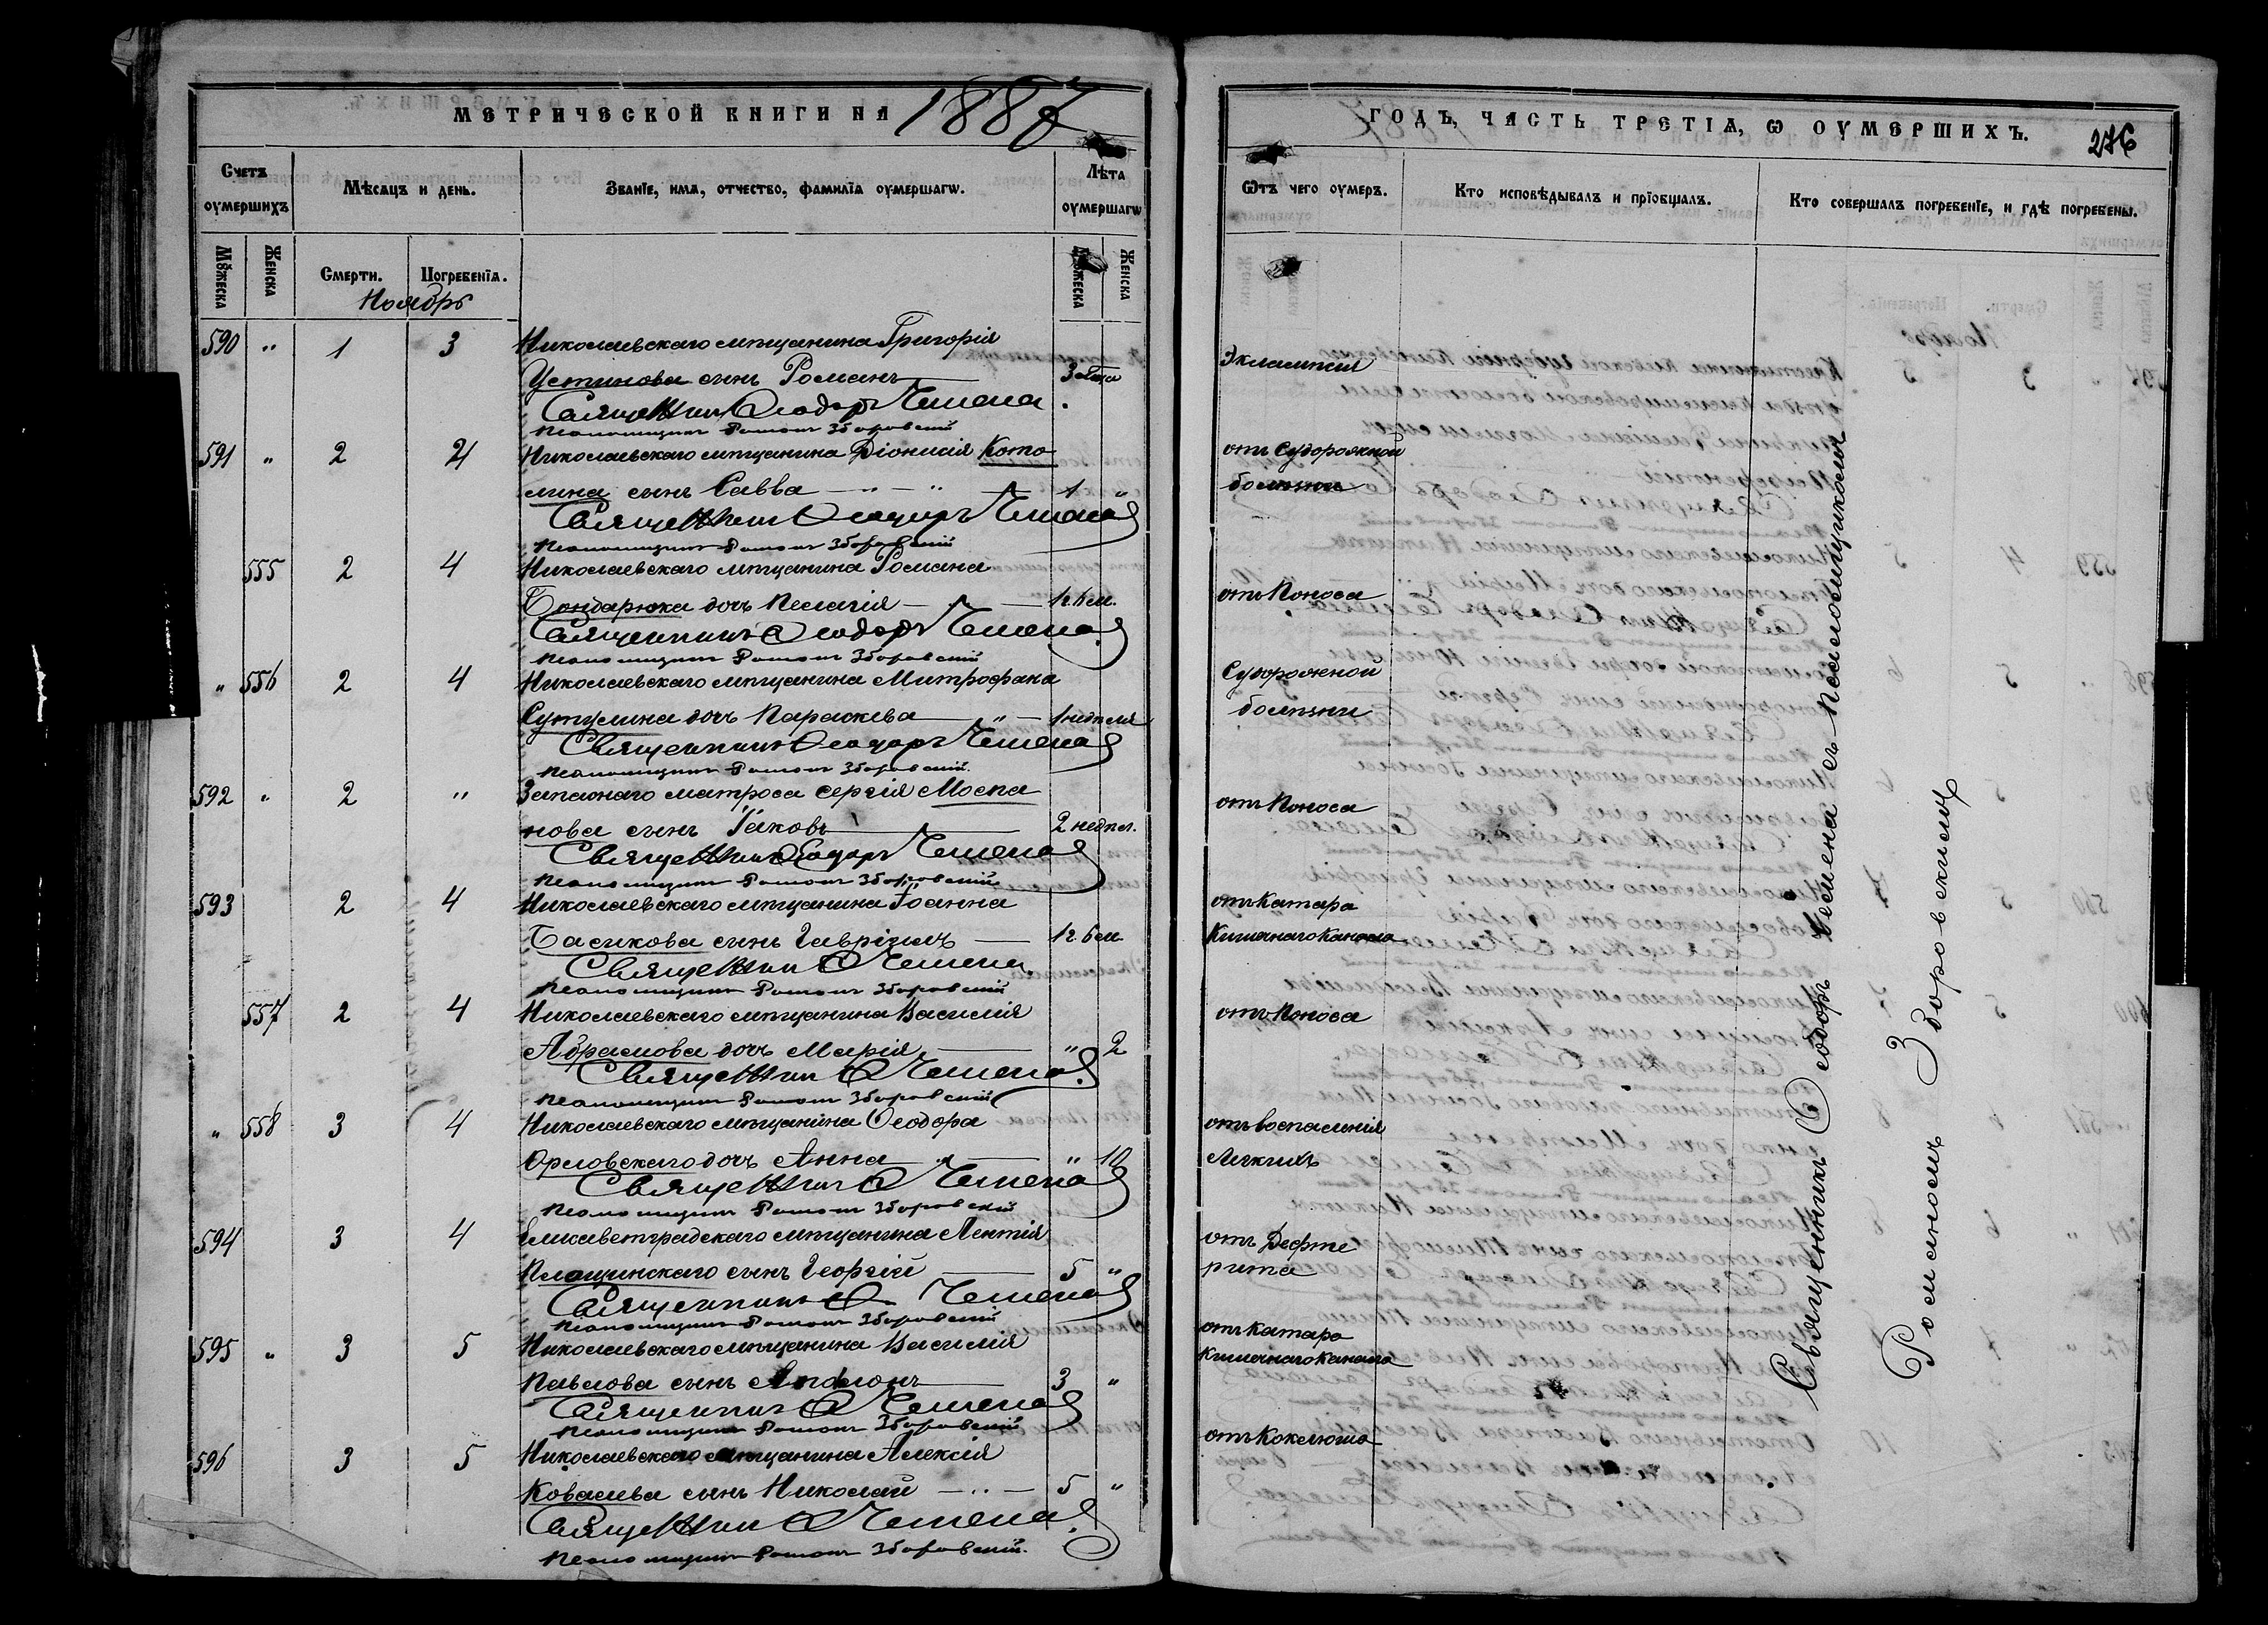 МЕТРИЧЕСКОЙ КНИГИ НА 1887
Счетъ оумершихъ
Мѣсяцъ и день.
Званїе, имя, отчество, фамилїа оумершагѡ.
Лѣта оумершагѡ
Мꙋжеска
Женска
Смерти.
Погребенїя.
Мꙋжеска
Женска
Ноябрь
590 " 1 3 Николаевскаго мѣщанина Григорія
Устинова сынъ Романъ 3
Священникъ Ѳеодоръ Чемена
Псаломщикъ Романъ Зборовскій
591 " 2 4 Николаевскаго мѣщанина Діонисія Кото
лина сынъ Савва — " — " 1 "
Священникъ Ѳеодоръ Чемена
Псаломщикъ Романъ Зборовскій
555 2 4 Николаевскаго мѣщанина Романа
Бондарюка дочь Пелагія — 1г. 6 м.
Священникъ Ѳеодоръ Чемена
Псаломщикъ Романъ Зборовскій
" 556 2 4 Николаевскаго мѣщанина Митрофана
Сутулина дочь Параскева — " — 1 недѣля
Священникъ Ѳеодоръ Чемена
Псаломщикъ Романъ Зборовскій.
592 " 2 " Запаснаго матроса Сергія Моспа
нова сынъ Іаковъ 2 недѣл.
Священникъ Ѳеодоръ Чемена
Псаломщикъ Романъ Зборовскій
593 2 4 Николаевскаго мѣщанина Іоанна
Басикова сынъ Гавріилъ — 1г. 6 м.
Священникъ Ѳ Чемена.
Псаломщикъ Романъ Зборовскій
557 2 4 Николаевскаго мѣщанина Василія
Абрамова дочь Марія — " 2
Священникъ Ѳ Чемена.
Псаломщикъ Романъ Зборовскій
" 558 3 4 Николаевскаго мѣщанина Ѳеодора
Орловскаго дочь Анна — " 10
Священникъ Ѳ Чемена
Псаломщикъ Романъ Зборовскій
594 3 4 Елисаветградскаго мѣщанина Леонтія
Площинскаго сынъ Георгій — 5 "
Священникъ Ѳ Чемена
Псаломщикъ Романъ Зборовскій
595 " 3 5 Николаевскаго мѣщанина Василія
Павлова сынъ 3 "
Священникъ Ѳ Чемена
Псаломщикъ Романъ Зборовскій
596 3 5 Николаевскаго мѣщанина Алексія
Ковалева сынъ Николай — " — 5 "
Священникъ Ѳ Чемена.
Псаломщикъ Романъ Зборовскій.
ГОДЪ, ЧАСТЬ ТРЕТІЯ, Ѡ ОУМЕРШИХЪ.
276
Ѿтъ чего оумеръ.
Кто исповѣдывалъ и прїобщалъ.
Кто совершалъ погребенїе, и гдѣ погребены.
Эклампсія
отъ Судорожной
болѣзни
отъ Поноса
Судорожной
болѣзни
отъ Поноса
отъ Катара
Кишечнаго Канала
отъ Поноса
отъ воспаленія
легкихъ
отъ Дефте
рита
отъ Катара
кишечнаго канала
отъ Коклюша
Священникъ Ѳеодоръ Чемена съ Псаломщикомъ
Романомъ Зборовскимъ